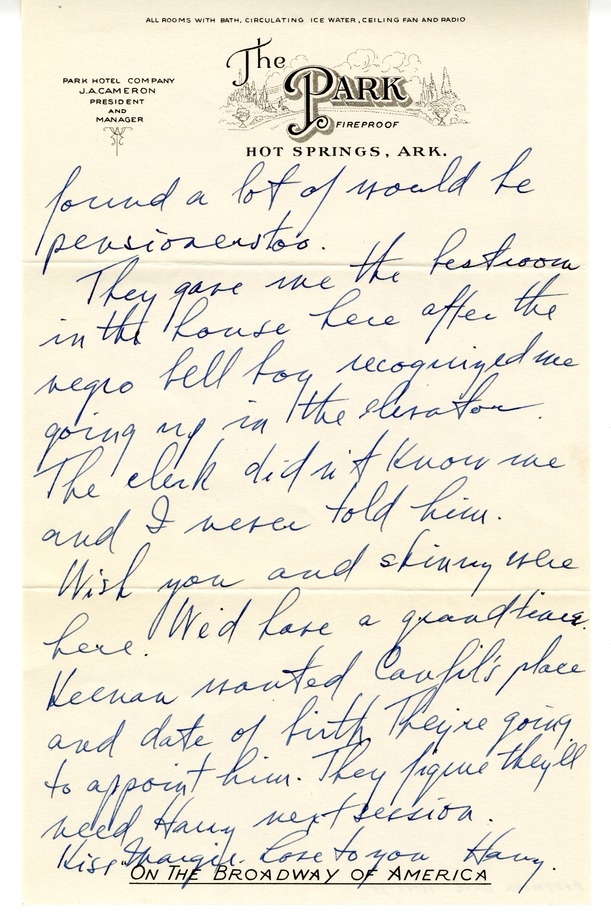 ALL ROOMS WITH BATH, CIRCULATING ICE WATER, CEILING FAN AND RADIO
PARK HOTEL COMPANY
J.A. CAMERON
PRESIDENT
AND
MANAGER
The
PARK
FIREPROOF
HOT SPRINGS, ARK.
found a lot of would be
pensioners too.
They gave me the best room
in the house here after the
negro bell boy recognized me
going up in the elevator.
The clerk didn't know me
and I never told him.
Wish you and skinny were
here. We'd have a grand time.
Keenan wanted Canfil's place
and date of birth They're going
to appoint him. They figure they'll
need Harry next session.
Kiss Margie. Love to you Harry.
ON THE BROADWAY OF AMERICA